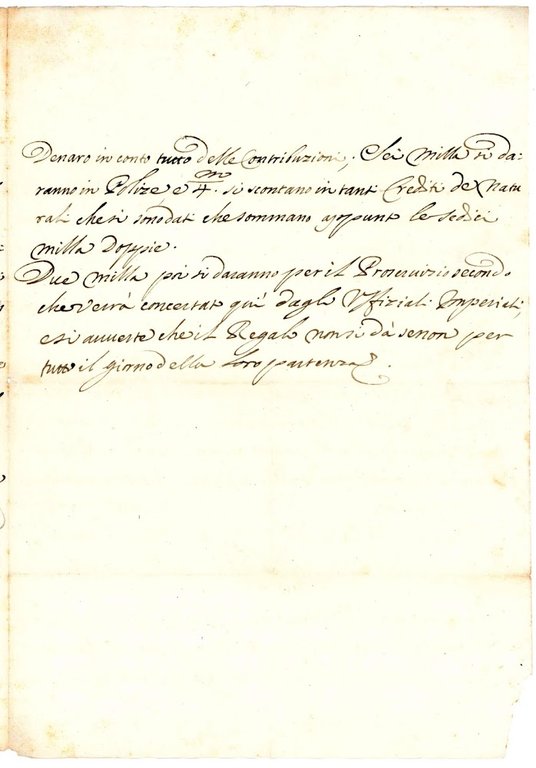 Denaro in conto tutto delle Contribuzioni; Sei milla si da:
ranno in Polize e 4.m si scontano in tanti Crediti de Natu
rali che si sono dati che sommano appunto le sedici
milla Doppie.
Due milla poi si daranno per il secondo
che verrà concertato quì dagli Uffiziali Imperiali,
e si avverte che il Regalo non si dà se non per
tutto il giorno della loro partenza.